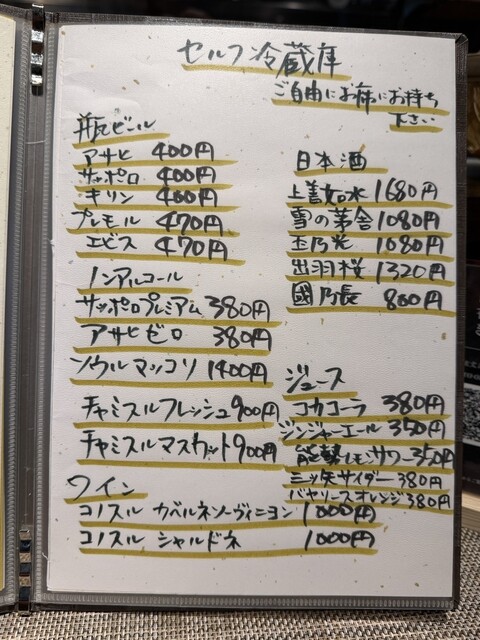 セルフ冷蔵庫
ご自由にお席にお持ち
下さい
瓶ビール
アサヒ 400円
サッポロ 400円
キリン 400円
プレモル 470円
エビス 470円
ノンアルコール
サッポロプレミアム 380円
アサヒゼロ 380円
ソウルマッコリ 1400円
チャミスルフレッシュ 900円
チャミスルマスカット 900円
ワイン
コノスル カベルネソーヴィニヨン 1000円
コノスル シャルドネ 1000円
日本酒
上善如水 1680円
雪の茅舎 1080円
玉乃光 1080円
出羽桜 1320円
國乃長 800円
ジュース
コカコーラ 380円
ジンジャーエール 350円
能勢レモンサワー 350円
三ッ矢サイダー 380円
バヤリースオレンジ 380円